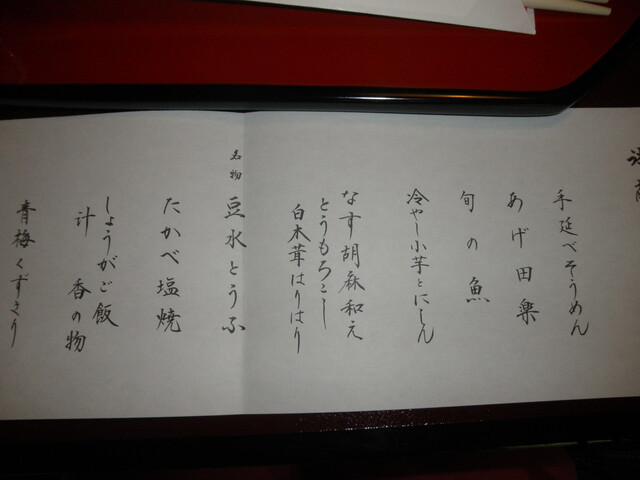 手延べそうめん
あげ田楽
旬の魚
冷やし小芋とにしん
なす胡麻和え
とうもろこし
白木茸はりはり
名物 豆水とうふ
たかべ塩焼
しょうがご飯
汁 香の物
青梅くずきり